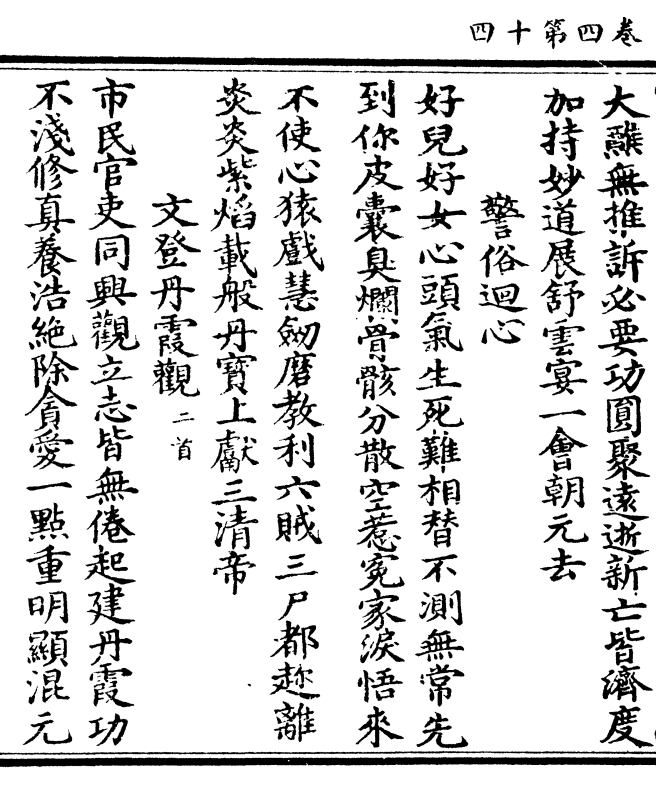 卷四第十四
大難無推訴必要功圓聚遠逝新亡皆濟度
加持妙道展舒雲宴一會朝元去
警俗迴心
好兒好女心頭氣生死難相替不測無常先
到你皮囊臭爛骨骸分散空惹冤家淚悟來
不使心猿戲慧劒磨教利六賊三尸都趂離
炎炎紫焰載般丹寶上獻三清帝
文登丹霞觀二首
市民官吏同興觀立志皆無倦起建丹霞功
不淺修真養浩絶除貪愛一點重明顯混元